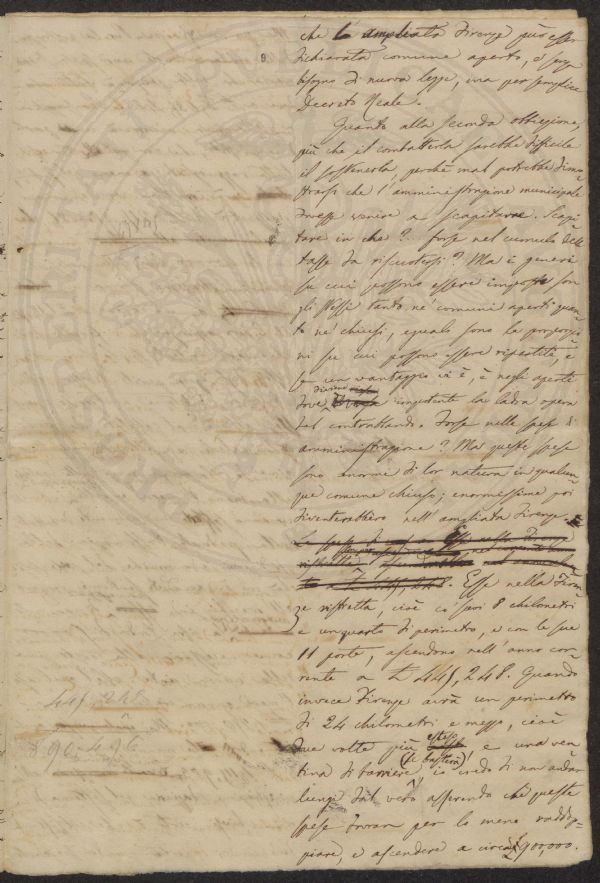 che l'ampliata Firenze può esser
dichiarata comune aperto, e senza
bisogno di nuova legge, ma per semplice
Decreto Reale.
Quanto alla seconda obbiezione,
più che il combatterla sarebbe difficile
il sostenerla, perchè mal potrebbe dimo-
strarsi che l'amministrazione municipale
dovesse venire a scapitarne. Scapi-
tare in che? forse nel cumulo delle
tasse da riscuotersi? Ma i generi
su cui possono essere imposte son
gli stessi tanto ne' comuni aperti quan-
to ne' chiusi, eguali sono le proporzio-
ni su cui possono essere ripartite, e
se un vantaggio vi è, è negli aperti
dove diviene impotente la ladra opera
del contrabbando. Forse nelle spese d'
amministrazione? Ma queste spese
sono enormi di lor natura in qualun-
que comune chiuso; enormissime poi
diventerebbero nell'ampliata Firenze.
Esse nella Firen-
ze ristretta, cioè co' suoi 8 chilometri
e un quarto di perimetro, e con le sue
11 porte, ascendono nell'anno cor-
rente a £ 445,248. Quando
invece Firenze avrà un perimetro
di 24 chilometri e mezzo, cioè
due volte più esteso, e una ven-
tina di barriere (se basterà), io credo di non andar
lungi dal vero asserendo che queste
spese dovran per lo meno raddop-
piare, e ascendere a circa £ 900,000.
445,248
2
890,496